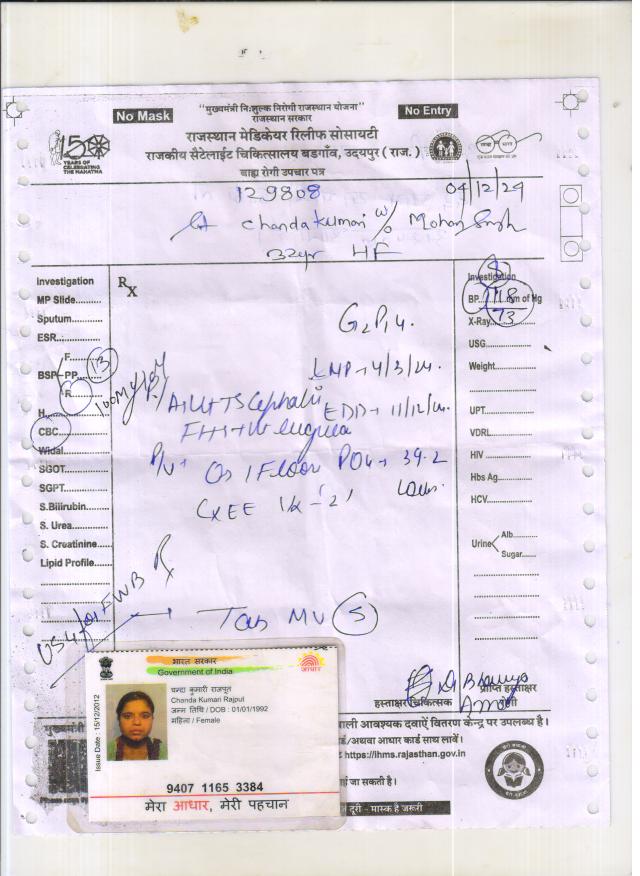 No Mask
"मुख्यमंत्री निःशुल्क निरोगी राजस्थान योजना"
No Entry
राजस्थान सरकार
राजस्थान मेडिकेयर रिलीफ सोसायटी
राजकीय सैटेलाईट चिकित्सालय बडगाँव, उदयपुर ( राज. )
150
YEARS OF
CELEBRATING
THE MAHATMA
बाह्य रोगी उपचार पत्र
129808
04/12/24
Chanda Kumari w/o Mohan Singh
32yr HF
Investigation
MP Slide..........
Sputum............
ESR................
BSP
F...........
PP.......... 13
R............
H...................
CBC..............
Widal.............
SGOT.............
SGPT.............
S.Bilirubin.........
S. Urea............
S. Creatinine....
Lipid Profile......
Rx
G2P1L1
LMP → 4/3/24.
EDD → 11/12/24.
P/A → UT TS Cephalic
FHS
P/V → Os 1 Floor POG → 39.2
CXEE
Rx
USG for FWB
→ Tab MV (5)
Investigation
BP 118 mm of Hg
73
X-Ray
USG
Weight
UPT
VDRL
HIV
Hbs Ag
HCV
Urine
Alb
Sugar
हस्ताक्षर चिकित्सक
प्राप्ति हस्ताक्षर
भारत सरकार
Government of India
आधार
Issue Date : 15/12/2012
चन्दा कुमारी राजपूत
Chanda Kumari Rajput
जन्म तिथि / DOB : 01/01/1992
महिला / Female
9407 1165 3384
मेरा आधार, मेरी पहचान
आवश्यक दवाऐं वितरण केन्द्र पर उपलब्ध है।
/अथवा आधार कार्ड साथ लावें।
https://ihms.rajasthan.gov.in
जा सकती है।
दूरी - मास्क है जरूरी